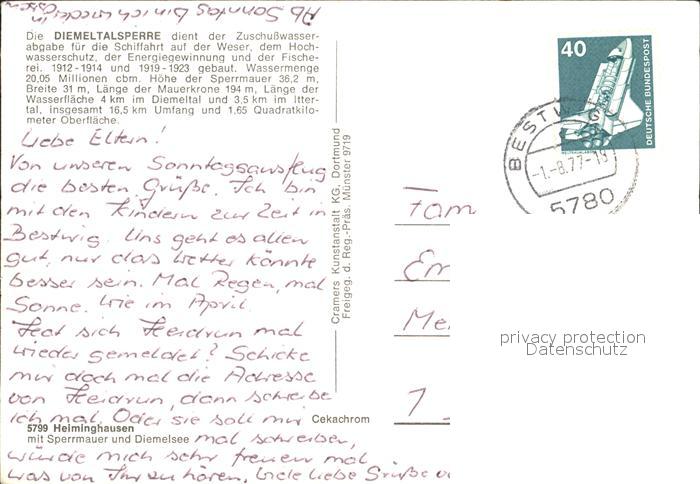 Ab Sonntag bin ich wieder in
Die DIEMELTALSPERRE dient der Zuschußwasser-
abgabe für die Schiffahrt auf der Weser, dem Hoch-
wasserschutz, der Energiegewinnung und der Fische-
rei. 1912-1914 und 1919-1923 gebaut. Wassermenge
20,05 Millionen cbm. Höhe der Sperrmauer 36,2 m,
Breite 31 m, Länge der Mauerkrone 194 m, Länge der
Wasserfläche 4 km im Diemeltal und 3,5 km im Itter-
tal, insgesamt 16,5 km Umfang und 1,65 Quadratkilo-
meter Oberfläche.
Liebe Eltern!
Von unseren Sonntagsausflug
die besten Grüße. Ich bin
mit den Kindern zur Zeit in
Bestwig. Uns geht es allen
gut, nur das Wetter könnte
besser sein. Mal Regen, mal
Sonne. Wie im April
Hat sich Heidrun mal
wieder gemeldet? Schicke
mir doch mal die Adresse
von Heidrun, dann schreibe
ich mal. Oder sie soll mir
mal schreiben,
würde mich sehr freuen mal
was von Ihr zu hören. Viele liebe Grüße
5799 Helminghausen
mit Sperrmauer und Diemelsee
Cekachrom
Cramers Kunstanstalt KG, Dortmund
Freigeg. d. Reg.-Präs. Münster 9719
40
DEUTSCHE BUNDESPOST
BESTWIG
-1.-8.77-19
5780
Fam
Er
Me
1
privacy protection
Datenschutz